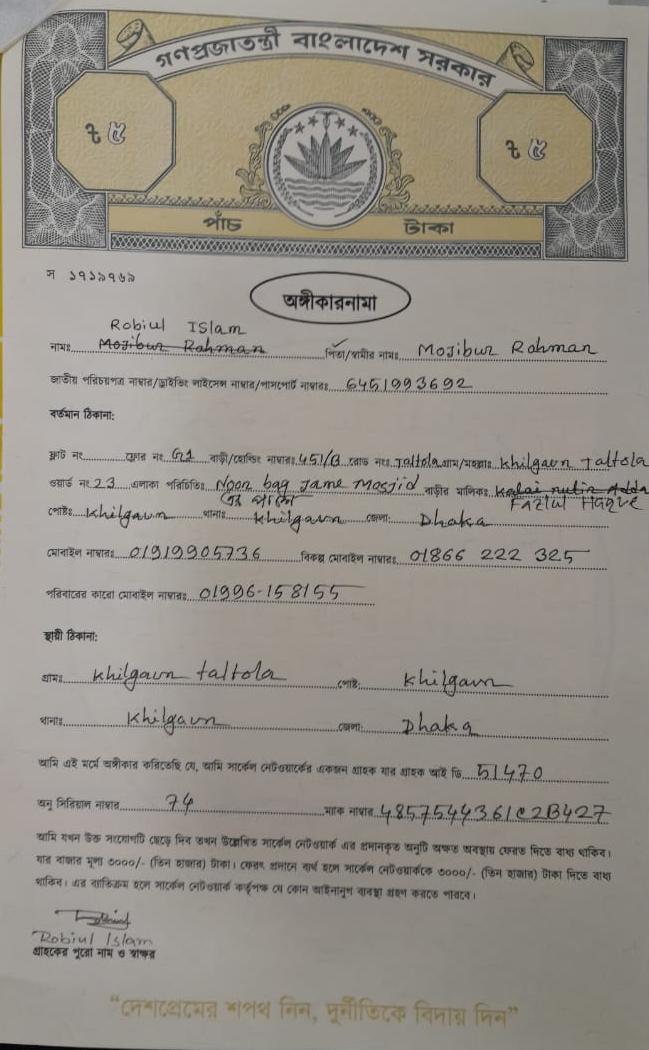 গণপ্রজাতন্ত্রী বাংলাদেশ সরকার
৳ ৫ ৳ ৫
পাঁচ টাকা
স ১৭১৯৭৬৯
অঙ্গীকারনামা
Robiul Islam
নামঃ Mojibur Rahman পিতা/স্বামীর নামঃ Mojibur Rahman
জাতীয় পরিচয়পত্র নাম্বার/ড্রাইভিং লাইসেন্স নাম্বার/পাসপোর্ট নাম্বারঃ 6451993692
বর্তমান ঠিকানা:
ফ্লাট নং ফ্লোর নং G1 বাড়ী/হোল্ডিং নাম্বারঃ 451/B রোড নংঃ Taltola গ্রাম/মহল্লাঃ Khilgaun Taltola
ওয়ার্ড নং 23 এলাকা পরিচিতিঃ Noor bag Jame Mosjid বাড়ীর মালিকঃ
এর পাশে Fazlul Haque
পোষ্টঃ Khilgaun থানাঃ Khilgaun জেলা: Dhaka
মোবাইল নাম্বারঃ 01919905736 বিকল্প মোবাইল নাম্বারঃ 01866 222 325
পরিবারের কারো মোবাইল নাম্বারঃ 01996-158155
স্থায়ী ঠিকানা:
গ্রামঃ Khilgaun taltola পোষ্ট: Khilgaun
থানাঃ Khilgaun জেলা: Dhaka
আমি এই মর্মে অঙ্গীকার করিতেছি যে, আমি সার্কেল নেটওয়ার্কের একজন গ্রাহক যার গ্রাহক আই ডি 51470
অনু সিরিয়াল নাম্বার 74 ম্যাক নাম্বার 4857544361C2B427
আমি যখন উক্ত সংযোগটি ছেড়ে দিব তখন উল্লেখিত সার্কেল নেটওয়ার্ক এর প্রদানকৃত অনুটি অক্ষত অবস্থায় ফেরত দিতে বাধ্য থাকিব।
যার বাজার মূল্য ৩০০০/- (তিন হাজার) টাকা। ফেরৎ প্রদানে ব্যর্থ হলে সার্কেল নেটওয়ার্ককে ৩০০০/- (তিন হাজার) টাকা দিতে বাধ্য
থাকিব। এর ব্যতিক্রম হলে সার্কেল নেটওয়ার্ক কর্তৃপক্ষ যে কোন আইনানুগ ব্যবস্থা গ্রহণ করতে পারবে।
Robiul Islam
গ্রাহকের পুরো নাম ও স্বাক্ষর
“দেশপ্রেমের শপথ নিন, দুর্নীতিকে বিদায় দিন”